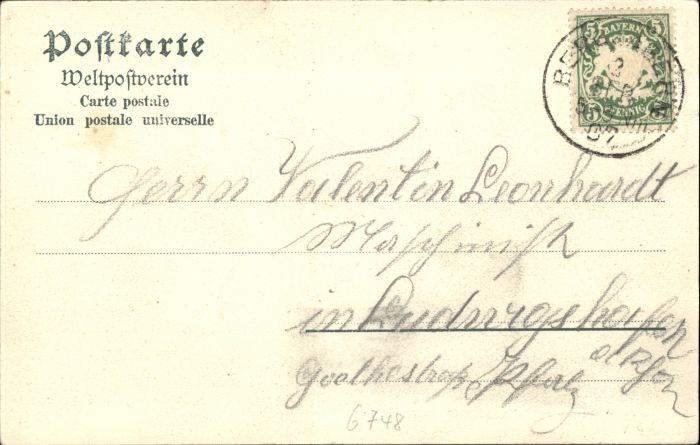 Postkarte
Weltpostverein
Carte postale
Union postale universelle
BAYERN
5 5
5 5
PFENNIG
Herrn Valentin Leonhardt
Maschinist
in Ludwigshafen
Pfalz
6748